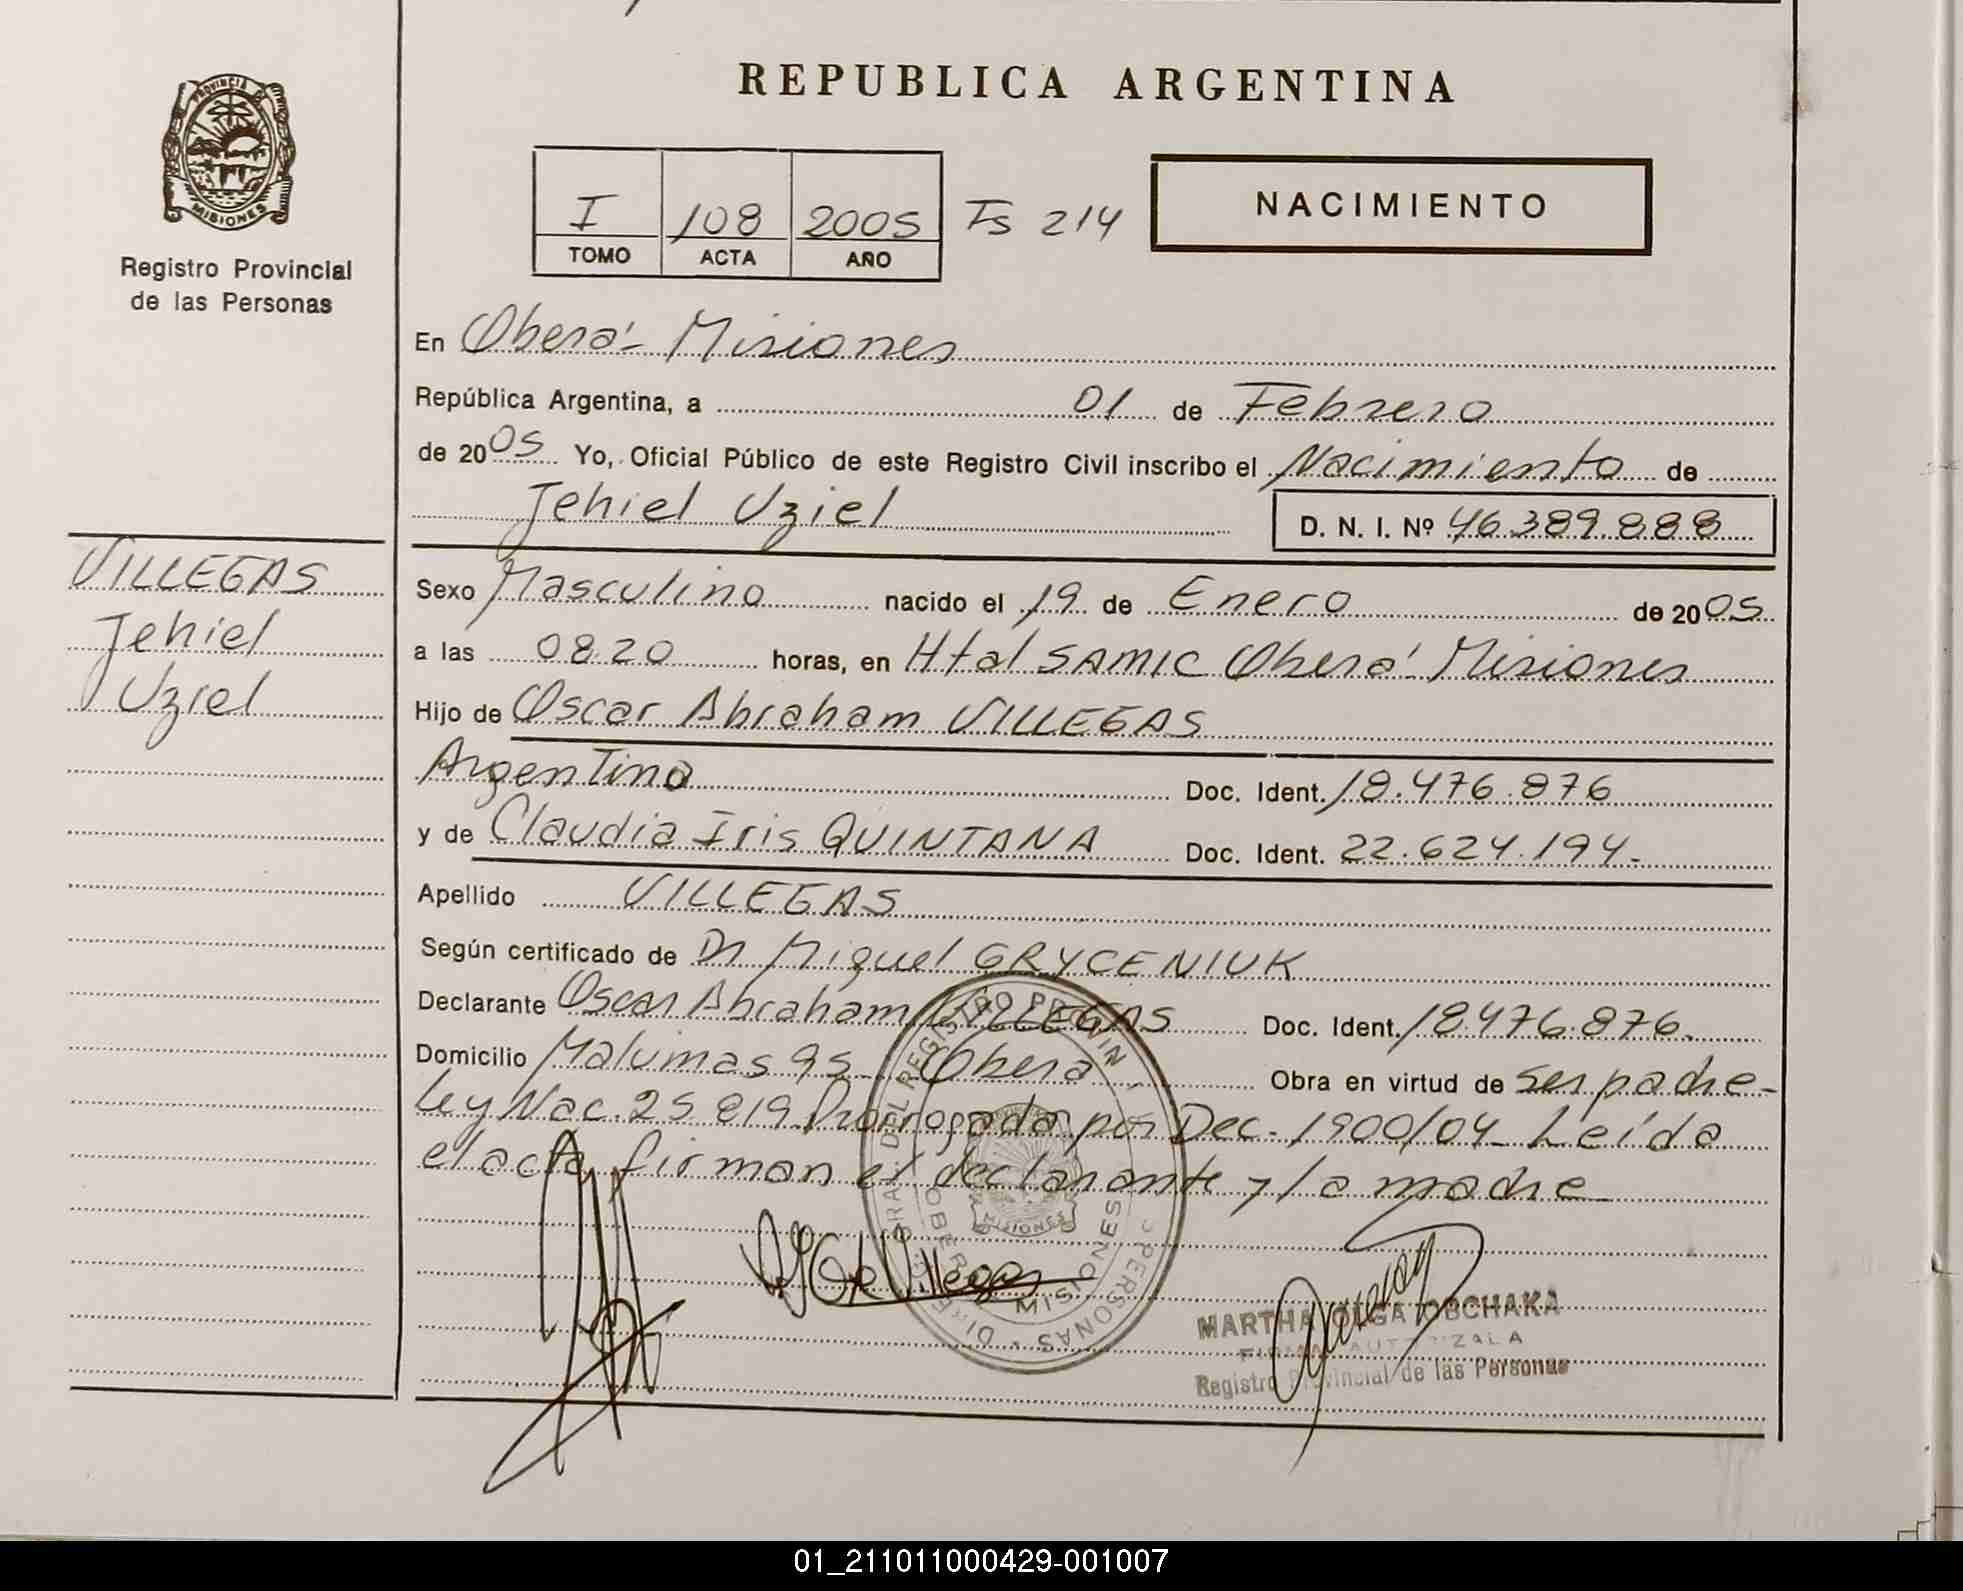 REPUBLICA ARGENTINA
PROVINCIA DE
MISIONES
Registro Provincial
de las Personas
I 108 2005 Fs 214
TOMO ACTA AÑO
NACIMIENTO
En Oberá - Misiones
República Argentina, a 01 de Febrero
de 2005 Yo, Oficial Público de este Registro Civil inscribo el Nacimiento de
Jehiel Uziel D. N. I. Nº 46.389.888
VILLEGAS
Jehiel
Uziel
Sexo Masculino nacido el 19 de Enero de 2005
a las 08.20 horas, en Htal SAMIC Oberá Misiones
Hijo de Oscar Abraham VILLEGAS
Argentino Doc. Ident. 18.476.876
y de Claudia Iris QUINTANA Doc. Ident. 22.624.194.-
Apellido VILLEGAS
Según certificado de Dr Miguel GRYCENIUK
Declarante Oscar Abraham VILLEGAS Doc. Ident. 18.476.876.
Domicilio Obera Obra en virtud de ser padre-
Ley Nac. 25.819 Prorrogada por Dec. 1900/04- Leída
el acta firman el declarante y la madre
MISIONES
MARTHA OLGA OBCHAKA
Registro Provincial de las Personas
01_211011000429-001007